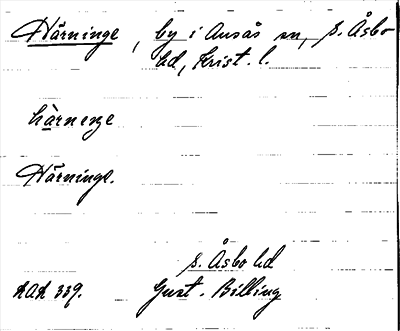 Härninge, by i Ausås sn, S. Åsbo
hd, Krist. l.
härnenge
Härninge.
S. Åsbo hd
LAL 339. Gust. Billing